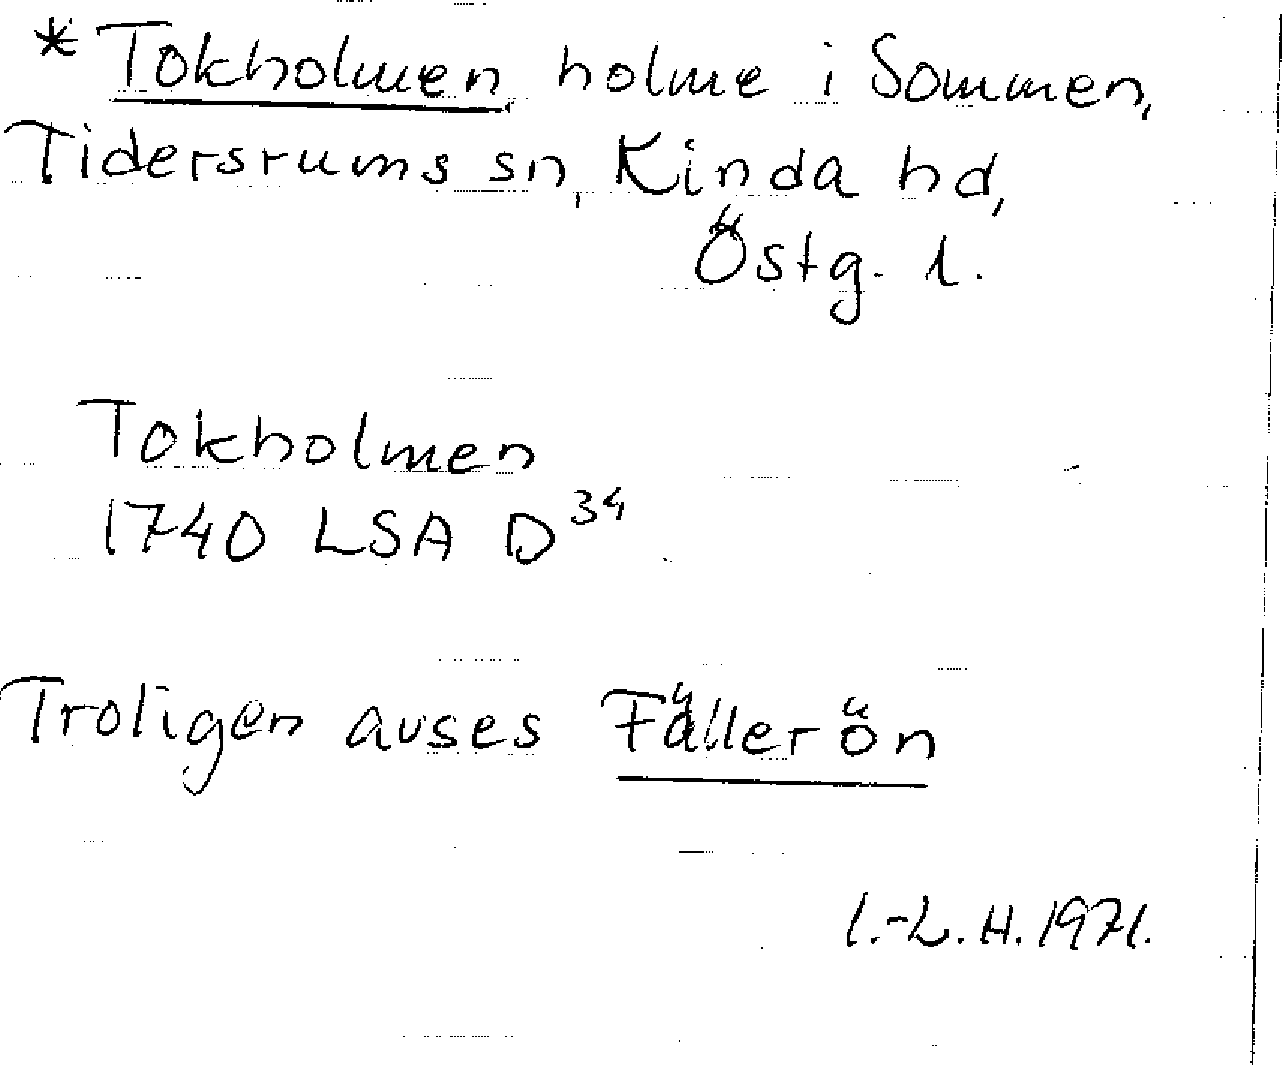 * Tokholmen, holme i Sommen,
Tidersrums sn, Kinda hd,
Östg. l.
Tokholmen
1740 LSA D 34
Troligen avses Fällerön
I.-L. H. 1971.